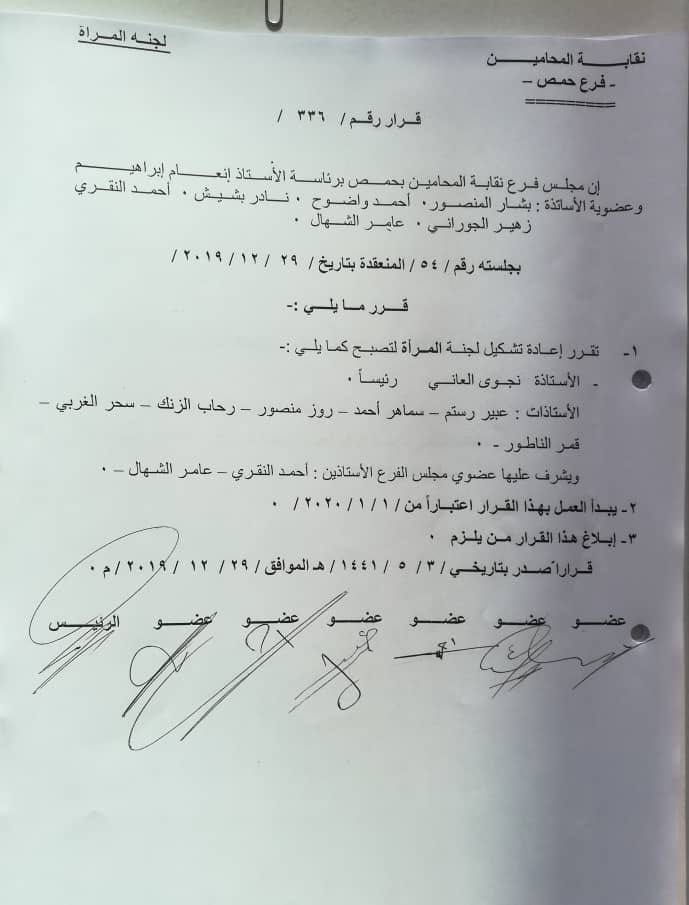 لجنه المرأة
نقابة المحاميين
- فرع حمص -
قرار رقم / ٣٣٦ /
إن مجلس فرع نقابة المحامين بحمص برئاسة الأستاذ إنعام إبراهيم
وعضوية الأساتذة : بشار المنصور ٠ أحمد واضوح ٠ نادر بشيش ٠ أحمد النقري
زهير الجوراني ٠ عامر الشهال ٠
بجلسته رقم / ٥٤ / المنعقدة بتاريخ / ٢٩ / ١٢ / ٢٠١٩ /
قرر ما يلي :-
١- تقرر إعادة تشكيل لجنة المرأة لتصبح كما يلي :-
- الأستاذة نجوى العاني رئيساً ٠
الأستاذات : عبير رستم – سماهر أحمد – روز منصور – رحاب الزنك – سحر الغربي –
قمر الناطور - ٠
ويشرف عليها عضوي مجلس الفرع الأستاذين : أحمد النقري – عامر الشهال – ٠
٢- يبدأ العمل بهذا القرار اعتباراً من / ١ / ١ / ٢٠٢٠ / ٠
٣- إبلاغ هذا القرار من يلزم ٠
قراراً صدر بتاريخي / ٣ / ٥ / ١٤٤١ / هـ الموافق / ٢٩ / ١٢ / ٢٠١٩ / م ٠
عضو عضو عضو عضو عضو عضو الرئيس